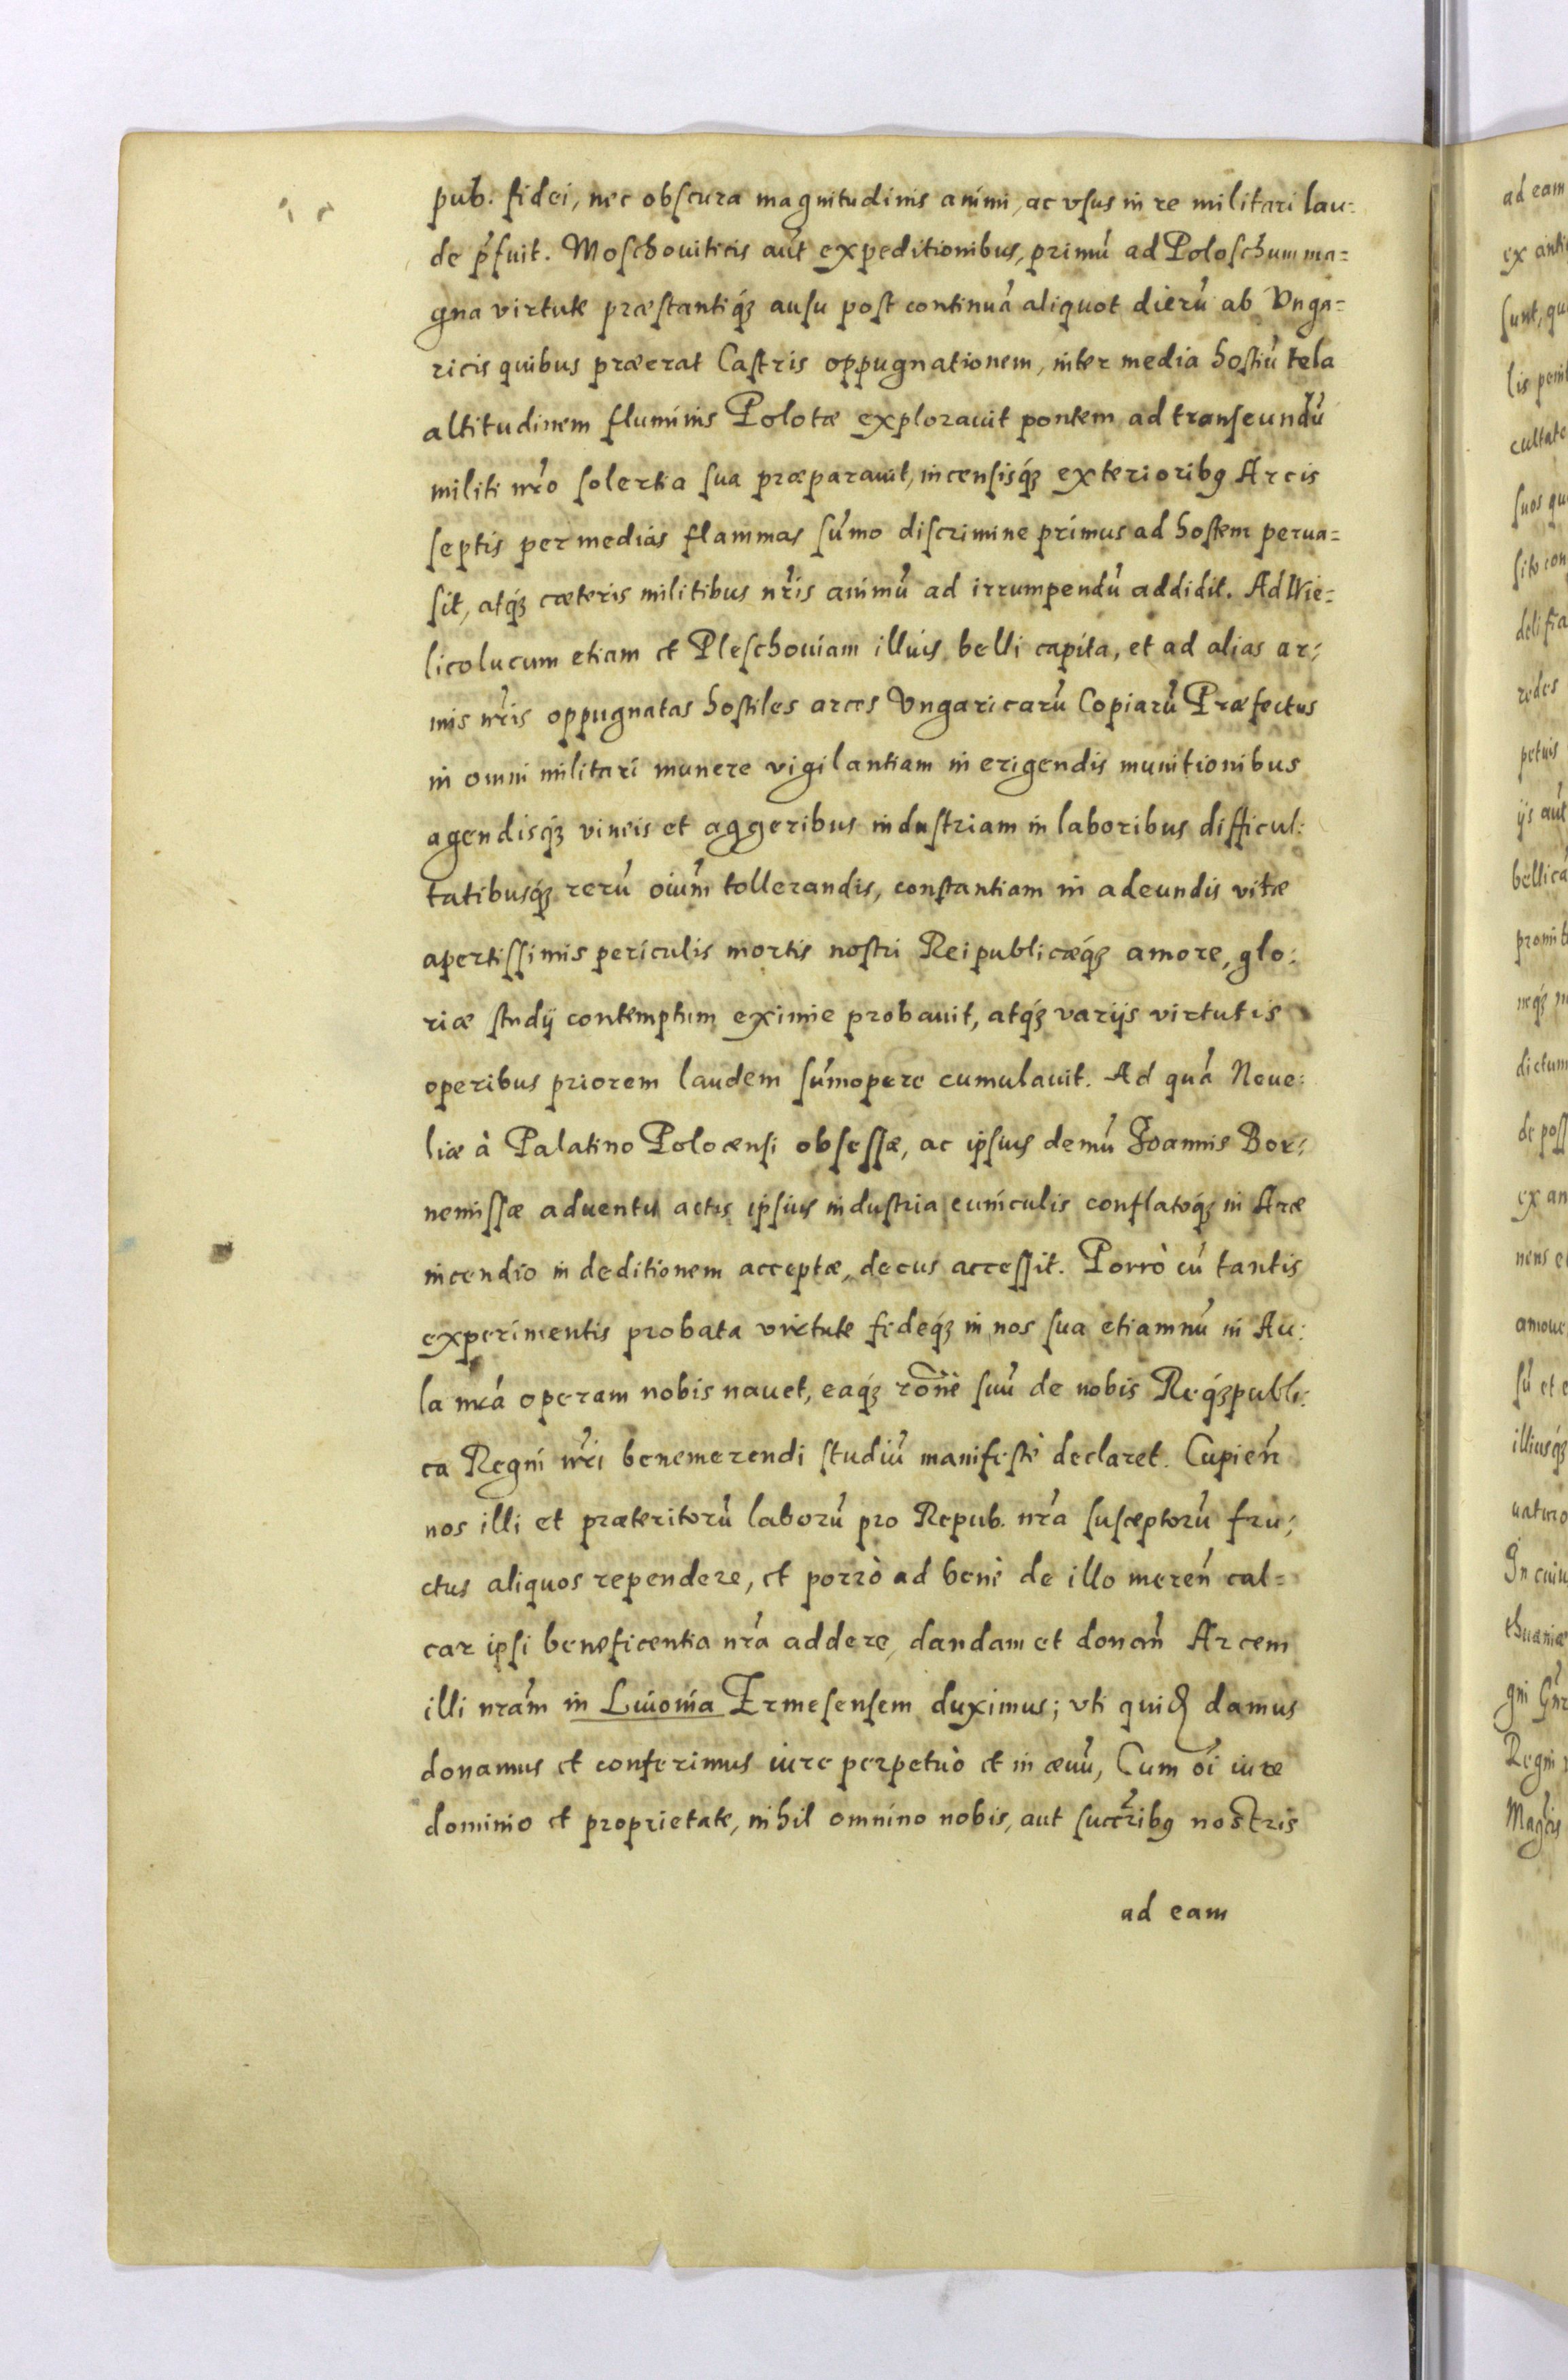 pub. fidei, nec obscura magnitudinis animi, ac vsus in re militari lau:
de p̃fuit. Moschouiticis aũt expeditionibus, primũ ad Poloschum ma=
gna virtute præstantiq́ꝫ ausu post continuã aliquot dierũ ab Vnga=
ricis quibus præerat Castris oppugnationem, inter media hostiũ tela
altitudinem fluminis Polotæ explorauit pontem ad transeundũ
militi nr̃o solertia sua præparauit, incensisq́ꝫ exterioribꝰ Arcis
septis per medias flammas sum̃o discrimine primus ad hostem perua=
sit, atq́ꝫ cæteris militibus nr̃is animũ ad irrumpendũ addidit. Ad Wie=
licolucum etiam et Pleschouiam illius belli capita, et ad alias ar:
mis nr̃is oppugnatas hostiles arces Vngaricarũ Copiarũ Præfectus
in omni militari munere vigilantiam in erigendis munitionibus
agendisq́ꝫ vineis et aggeribus industriam in laboribus difficul:
tatibusq́ꝫ rerũ oiũm tollerandis, constantiam in adeundis vitæ
apertissimis periculis mortis nostri Reipublicæq́ꝫ amore, glo:
riæ studij contemptum eximie probauit, atq́ꝫ varijs virtutis
operibus priorem laudem sum̃opere cumulauit. Ad quã Neue:
liæ à Palatino Polocensi obsessæ, ac ipsius demũ Joannis Bor:
nemissæ aduentu actis ipsius industria cuniculis conflatoq́ꝫ in Arce
incendio in deditionem acceptæ, decus accessit. Porrò cũ tantis
experimentis probata virtute fideq́ꝫ in nos sua etiamnũ in Au:
la nr̃a operam nobis nauet, eaq́ꝫ rõne suũ de nobis Req́ꝫpubli:
ca Regni nr̃i benemerendi studiũ manifestè declaret. Cupieñ
nos illi et præteritorũ laborũ pro Repub. nr̃a susceptorũ fru:
ctus aliquos rependere, et porrò ad benè de illo mereñ cal=
car ipsi beneficentia nr̃a addere, dandam et donañ Arcem
illi nr̃am in Liuonia Ermesensem duximus; vti quidẽ damus
donamus et conferimus iure perpetuò et in æuũ, Cum õi iure
dominio et proprietate, nihil omnino nobis, aut succr̃ibꝰ nostris
ad eam